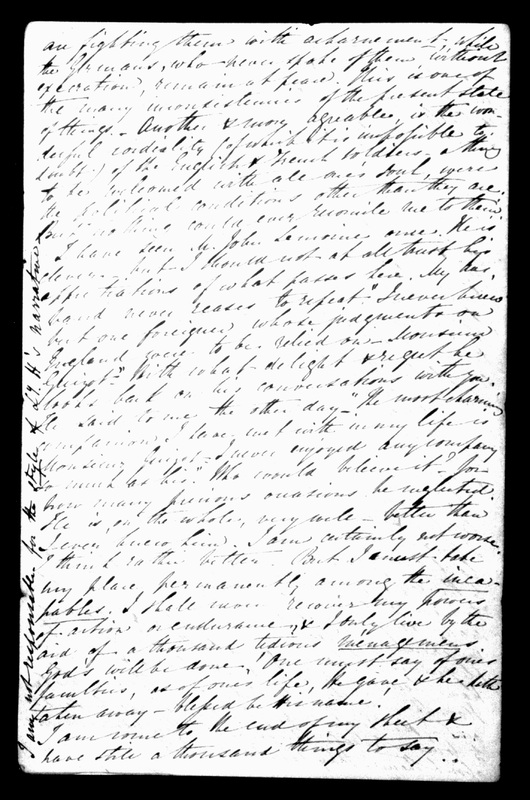 are fighting them with acharnement, while
the Germans, who never spake of them without
execration, remain at peace. This is one of
the many inconsistencies of the present state
of things. Another & more agreeable, is the won-
derful cordiality (of which it is impossible to
doubt) of the English & French soldiers - a thing
to be welcomed with all ones soul, were
the political conditions other than they are.
But nothing could ever reconcile me to them.
I have seen M. John Lemoinne once. He is
clever - but I should not at all trust his
appreciations of what passes here. My hus-
band never ceases to repeat "I never knew
but one foreigner whose judgments on
England were to be relied on - Monsieur
Guizot." With what delight & regret he
looks back on his conversations with you.
He said to me the other day - "The most charming
companion I have met with in my life is
Monsieur Guizot - I never enjoyed any company
so much as his." Who would believe it? for
how many precious occasions he neglected.
He is, on the whole, very well - better than
I ever knew him. I am certainly not worse.
I think rather better. But I must take
my place permanently among the inca-
pables. I shall never recover my powers
of action or endurance, & I only live by the
aid of a thousand tedious menagemens
Gods will be done. One must say of ones
faculties, as of ones life, He gave & he hath
taken away - blessed be His name.
I am come to the end of my sheet &
have still a thousand things to say..
I am not responsible for the style of Ly H's narrative